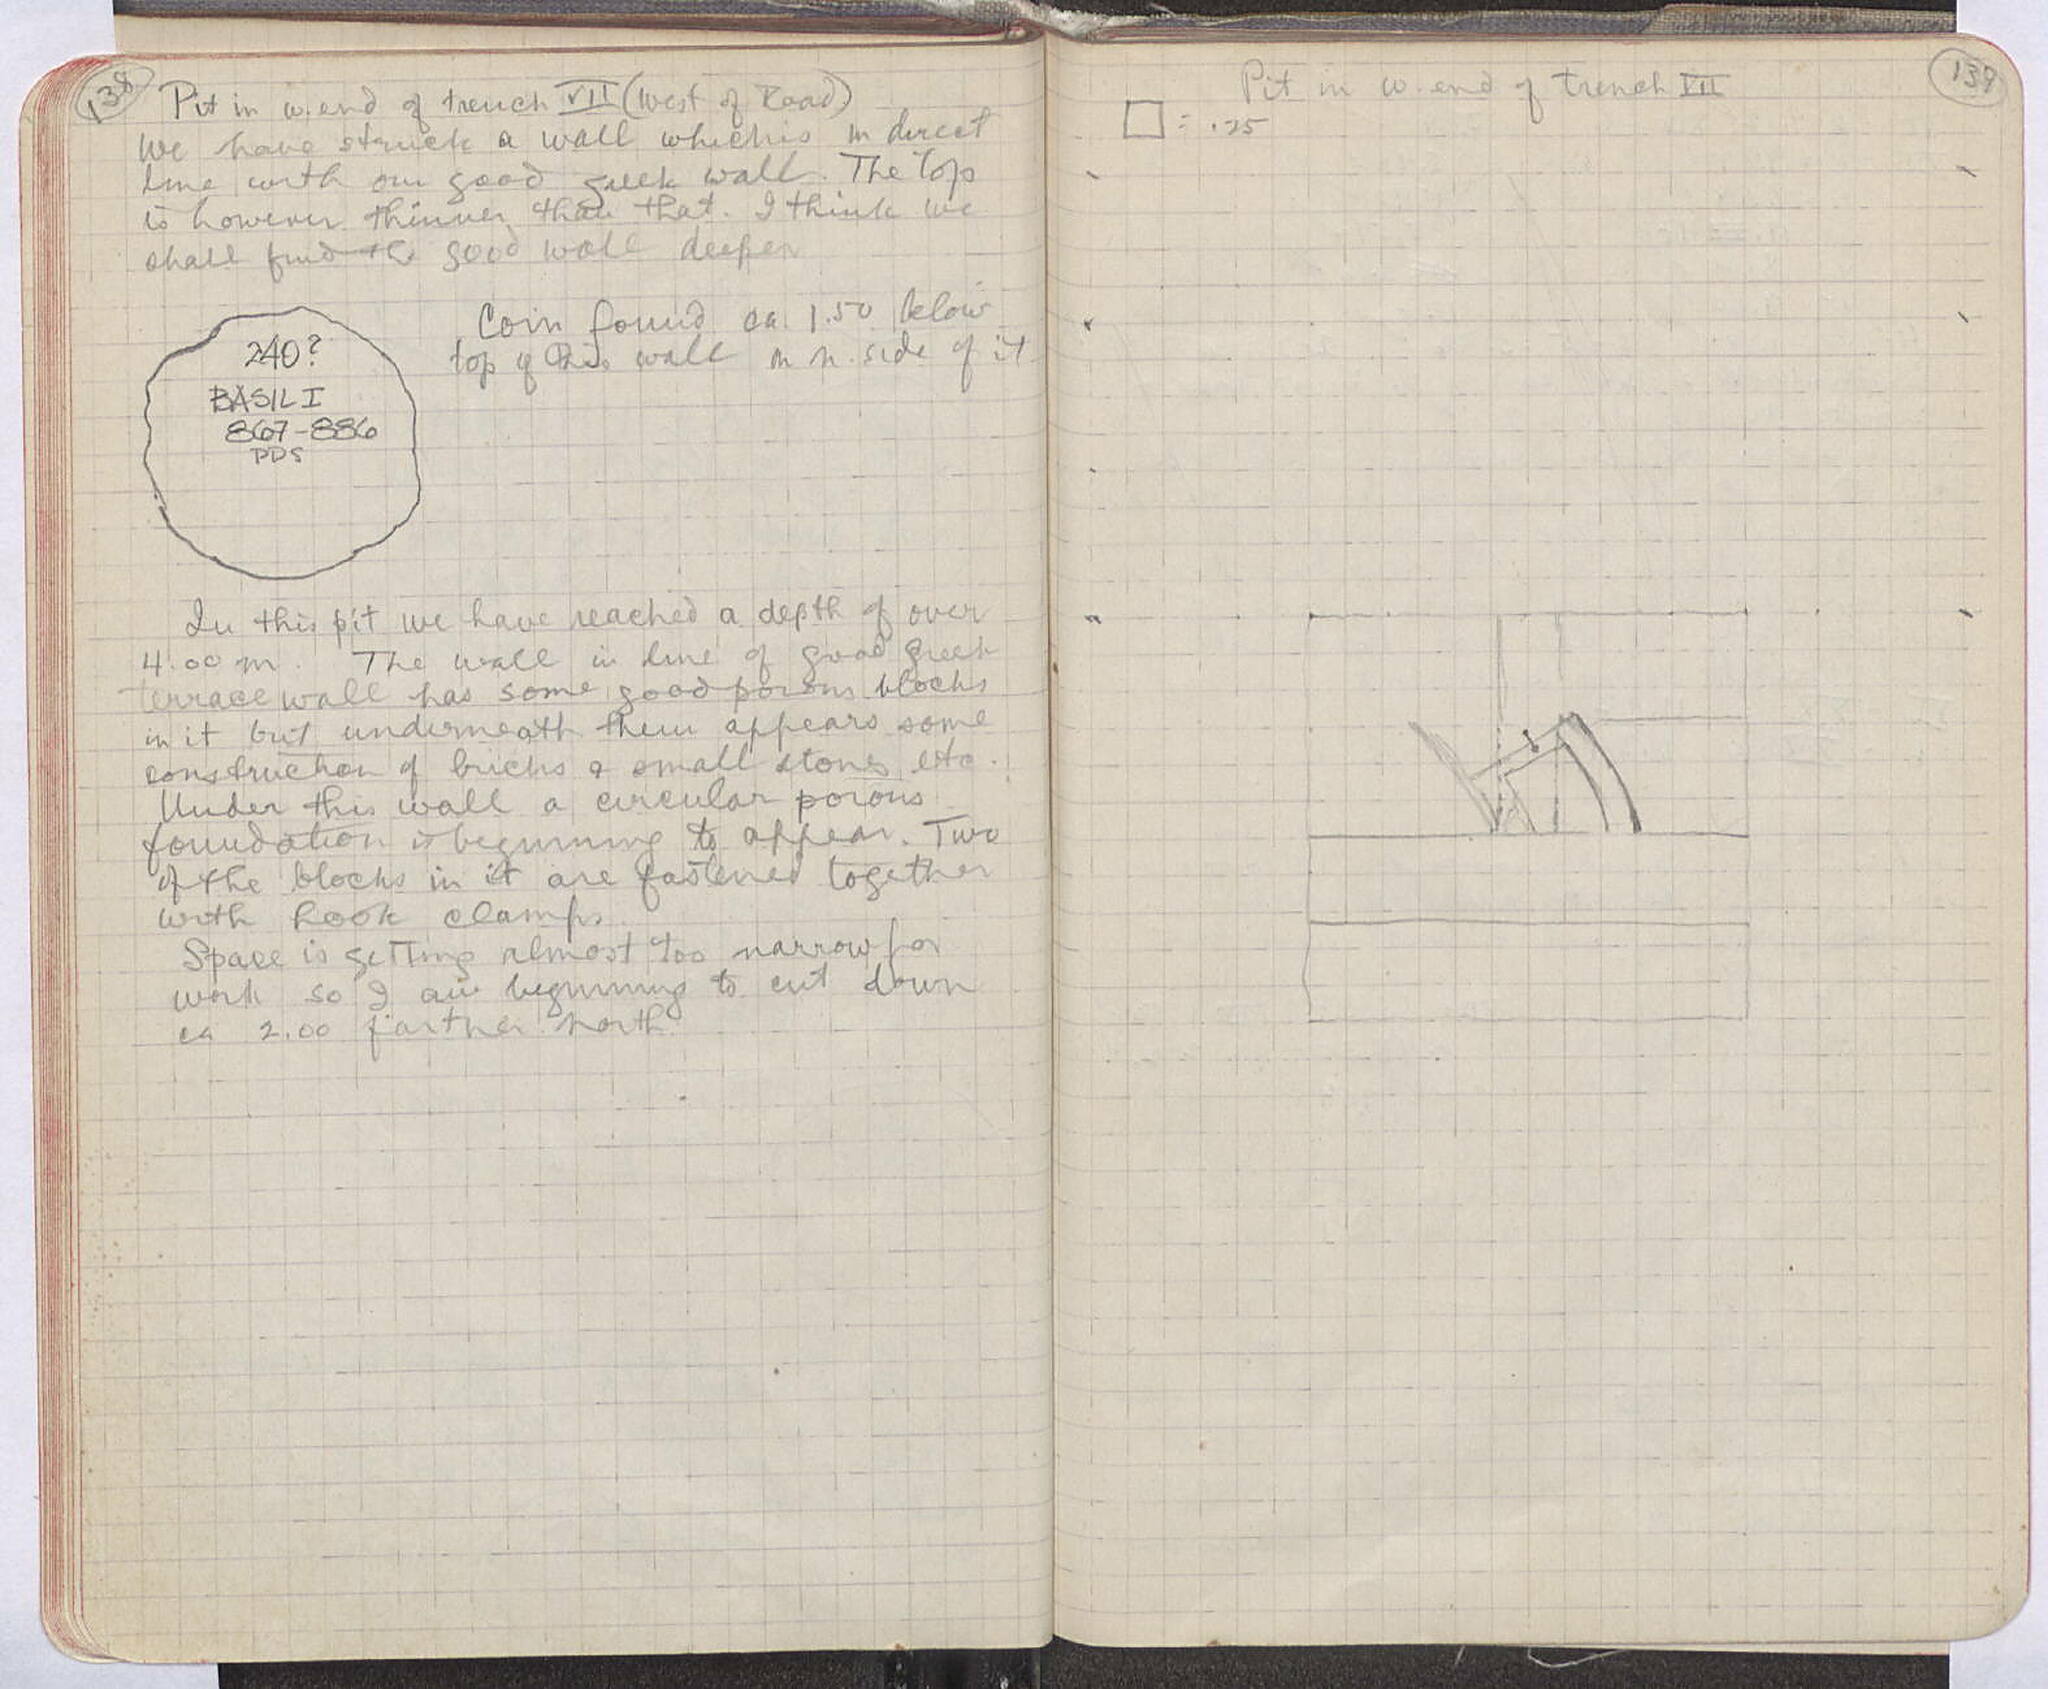 138
Pit in w. end of trench VII (West of Road)
We have struck a wall which is in direct
line with our good greek wall. The top
is however thinner than that. I think we
shall find the good wall deeper
240?
BASIL I
867-886
PDS
Coin found ca. 1.50 below
top of this wall on n. side of it
In this pit we have reached a depth of over
4.00 m. The wall in line of good greek
terrace wall has some good poros blocks
in it but underneath them appears some
construction of bricks & small stones etc.
Under this wall a circular poros
foundation is beginning to appear. Two
of the blocks in it are fastened together
with hook clamps.
Space is getting almost too narrow for
work so I am beginning to cut down
ca 2.00 farther north
139
Pit in w. end of trench VII
= .25